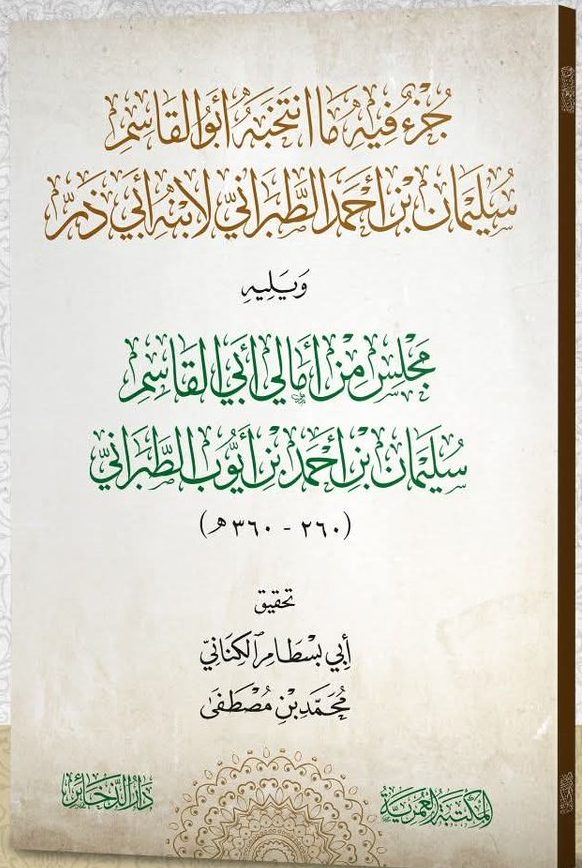 جُزْءٌ فِيهِ مَا انْتَخَبَهُ أَبُو القَاسِمِ
سُلَيْمَان بْن أَحْمَد الطَّبَرَانِيّ لِابْنِهِ أَبِي ذَرّ
وَيَلِيهِ
مَجْلِس مِنْ أَمَالِي أَبِي القَاسِمِ
سُلَيْمَان بْنِ أَحْمَد بْنِ أَيُّوب الطَّبَرَانِيّ
(٢٦٠ - ٣٦٠ هـ)
تحقيق
أَبِي بِسْطَامٍ الكِنَانِيّ
مُحَمَّد بْنِ مُصْطَفَىٰ
المَكْتَبَةُ العُمَرِيَّة
دَارُ الذَّخَائِر